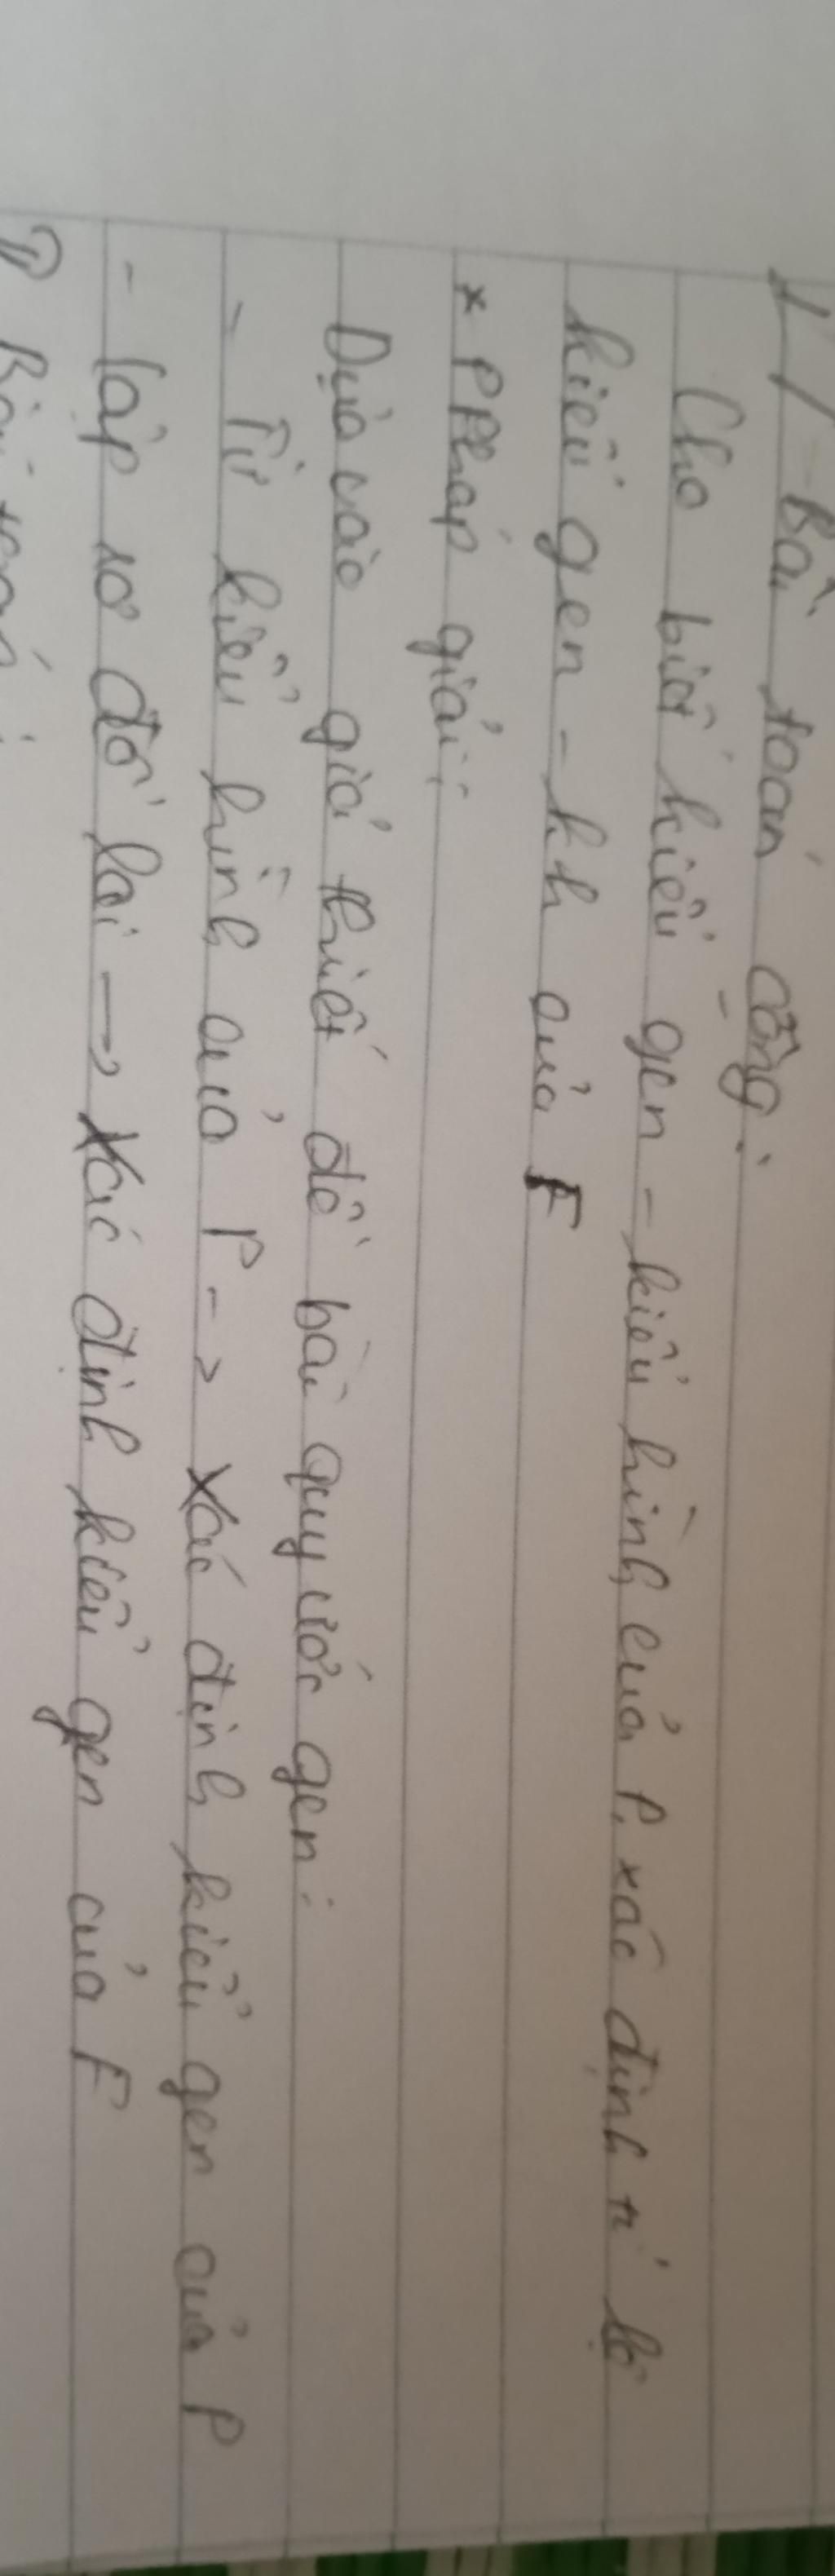 1/ Bài toán cộng:
Cho biết kiểu gen - kiểu hình của P, xác định tỉ lệ
kiểu gen - kh của F
* PPháp giải:
Dựa vào giả thiết đề bài quy ước gen:
- Từ kiểu hình của P -> xác định kiểu gen của P
- lập sơ đồ lai -> xác định kiểu gen của F